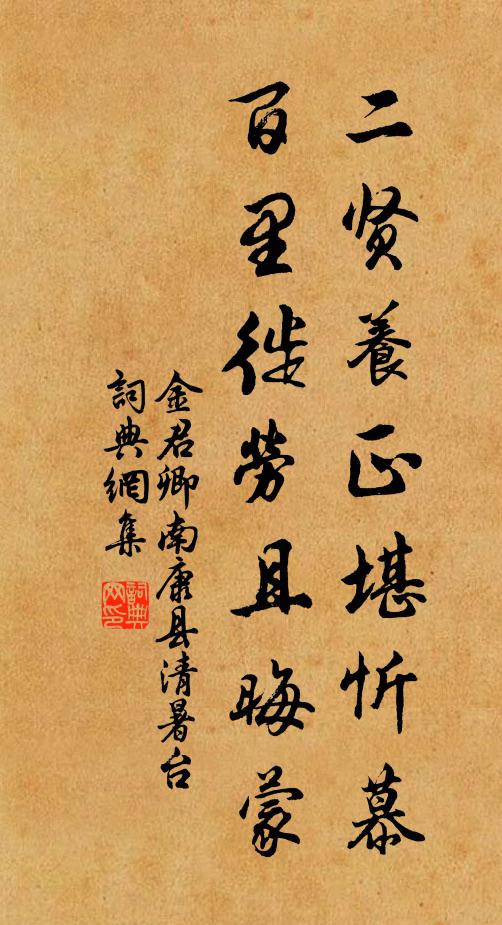 二贤養正堪忻慕
百里徙劳且晦蒙
金君卿南康县清暑台
詞典網集
詞典网印